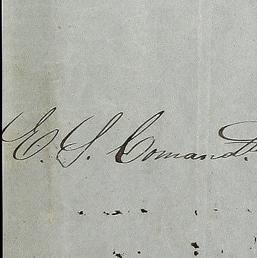 E. S. Comand.